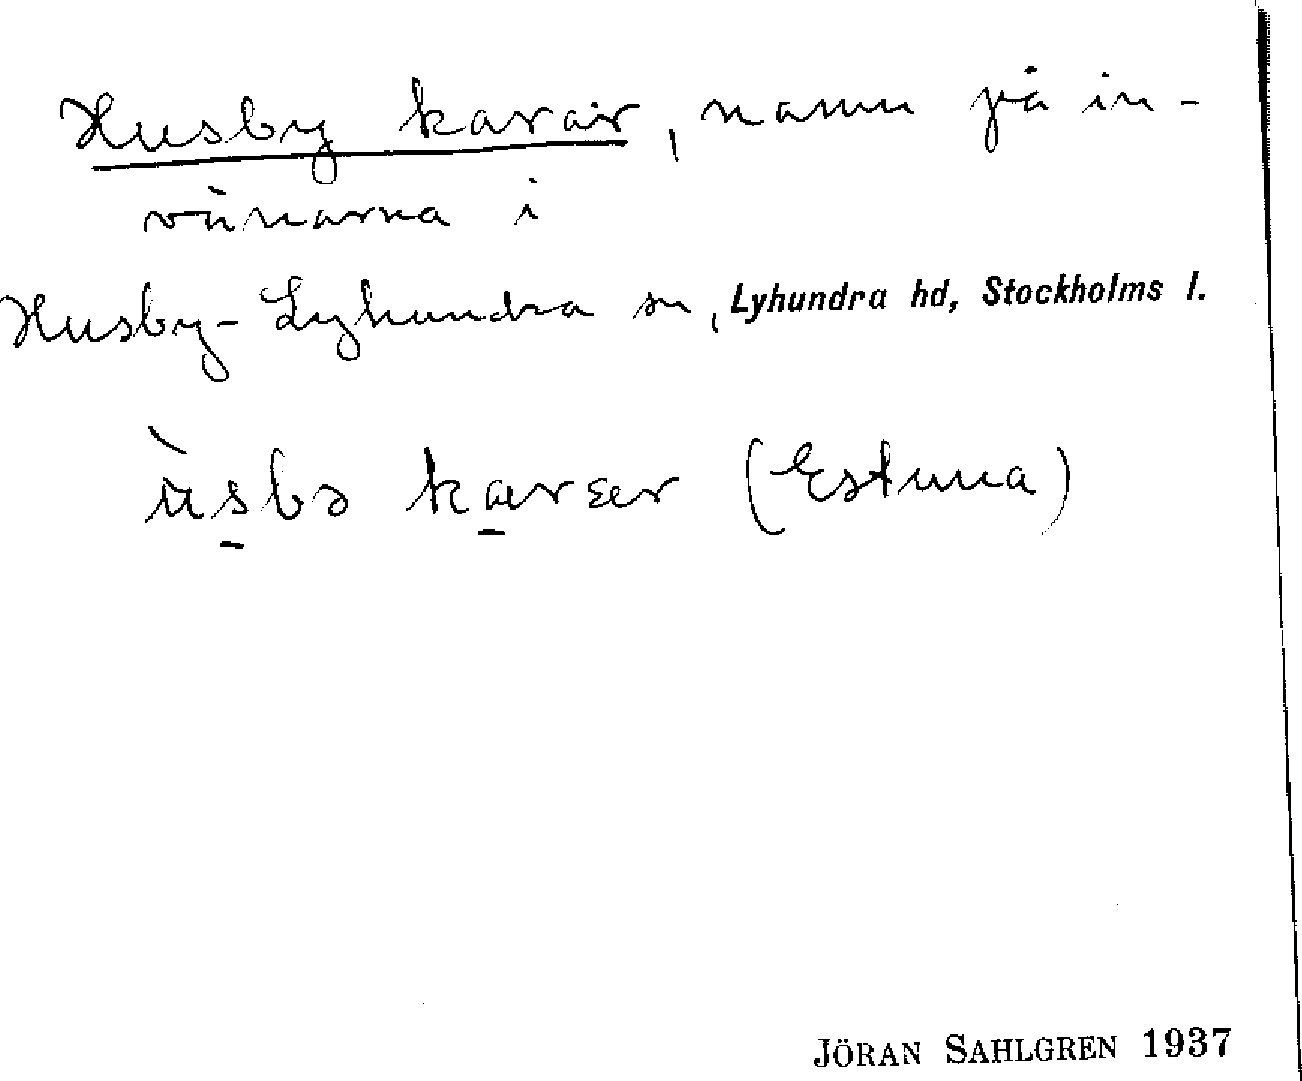 Husby karar, namn på in-
vånarna i
Husby-Lyhundra sn, Lyhundra hd, Stockholms l.
(Estuna)
JÖRAN SAHLGREN 1937